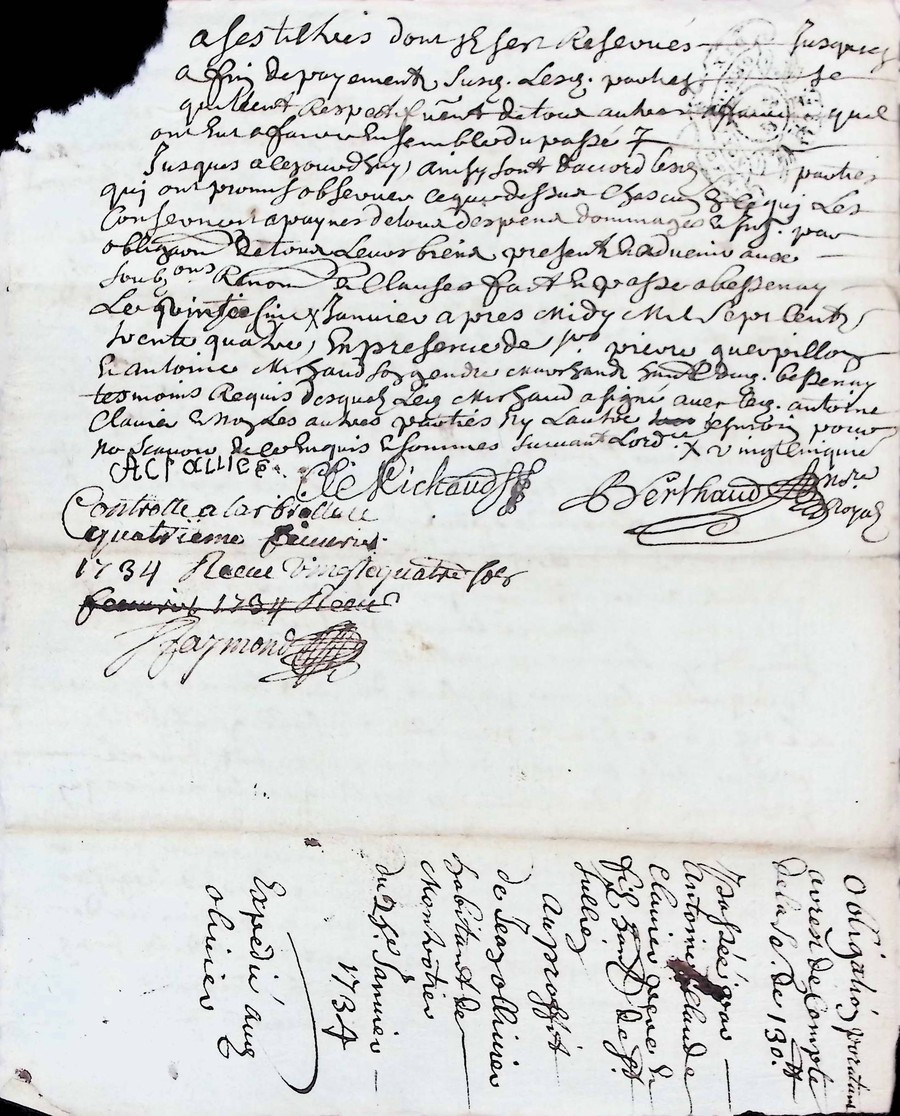 a ses tiltres dont il sest Reservés Jusques
a fin de payement, Susd. Lesd. parties se
quittent Respectivem̃ent de tous autres affaires quel
ont Eut a faire Ensemble du passé
Jusques a cejourdhuy, ainsy sont daccord lesd parties
qui ont promis observer ce que dessus Chascun En ce qui Les
Concerne a paynes de tous despens dommages par
obligaõn de tous Leurs biens presents & advenir aux
Soubz.ons Renon & Clauses fait & passé a bessenay
Le Janvier apres Midy Mil Sept Cents
trente quatre, En presence de pierre querpillon
& antoine Michaud son gendre Marchands bessenay
tesmoins Requis desquels Led Michaud a signé avec led. antoine
Claries & Non Les autres parties Ny Lautre tesmoin pour
Ne Scavoir de ce Enquis & sommes suivant Lordre x vingtcinquie
ACLAUIEE
Michaud
Berthaud Nore
Royal
Controllé a larbrelle ce
quatrieme feuvrier
1734 Receu vingtequatre sols
feuvrier 1734 Receu
Raymond
Obligation portant
arrest de Compte
de la So. de 130.tt
passée par
antoine Claude
Clavier pere &
fils de St
Jullien
Au proffit
de Jean ollivier
habitant de
Montrotier
du 25e Janvier
1734
Expedié aud
olivier